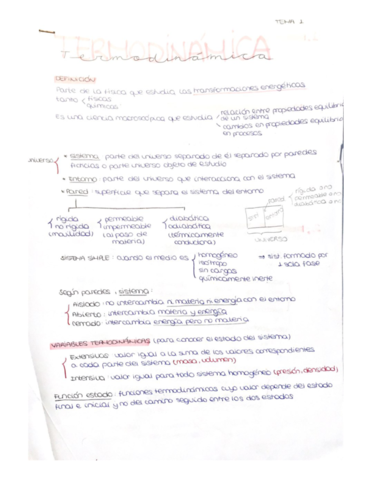 TEMA 1
TERMODINÁMICA
Termodinámica
DEFINICIÓN
Parte de la física que estudia las transformaciones energéticas
tanto físicas
químicas
Es una ciencia macroscópica que estudia
relación entre propiedades equilibrio
de un sistema
cambios en propiedades equilibrio
en procesos
universo
• Sistema: parte del universo separado de el separado por paredes
ficticias o parte universo objeto de estudio
• Entorno: parte del universo que interacciona con el sistema
• Pared: superficie que separa el sistema del entorno
pared
sist
entorno
UNIVERSO
rígida
no rígida
(movilidad)
permeable
impermeable
(al paso de
materia)
diabática
adiabática
(térmicamente
conductora)
SISTEMA SIMPLE: cuando el medio es
homogéneo
isótropo
sin cargas
químicamente inerte
→ sist. formado por
1 sola fase
Según paredes - sistema:
Aislado: no intercambia ni materia ni energía con el entorno
Abierto: intercambia materia y energía
Cerrado: intercambia energía pero no materia
VARIABLES TERMODINÁMICAS (para conocer el estado del sistema)
Extensivas: valor igual a la suma de los valores correspondientes
a cada parte del sistema (masa, volumen)
Intensiva: valor igual para todo sistema homogéneo (presión, densidad)
Función estado: funciones termodinámicas cuyo valor depende del estado
final e inicial y no del camino seguido entre los dos estados